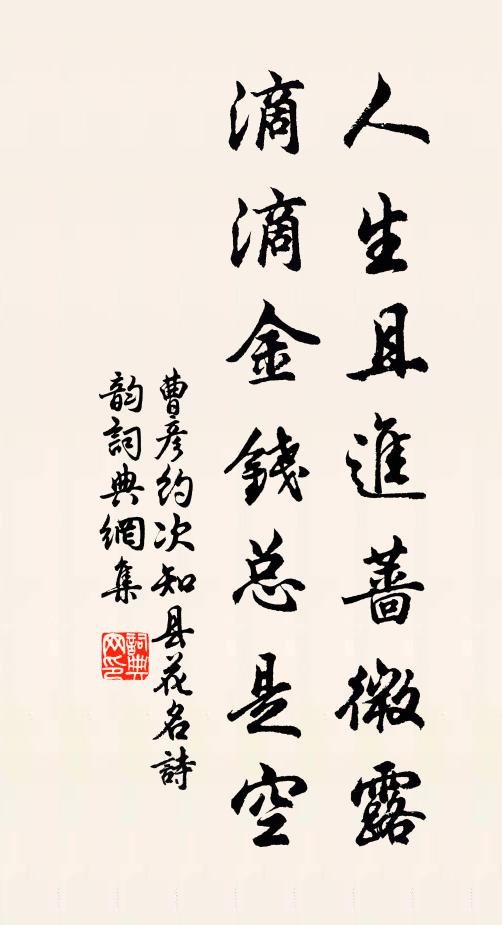 人生且進薔薇露
滴滴金錢总是空
曹彦約次知县花名詩
韵詞典網集
詞典网印